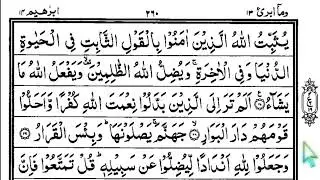 وما ابرئ ١٣ ٢٦٠ ابرٰهيم ١٤
يُثَبِّتُ اللّٰهُ الَّذِيْنَ اٰمَنُوْا بِالْقَوْلِ الثَّابِتِ فِي الْحَيٰوةِ
الدُّنْيَا وَفِي الْاٰخِرَةِ ۚ وَيُضِلُّ اللّٰهُ الظّٰلِمِيْنَ ۙ وَيَفْعَلُ اللّٰهُ مَا
يَشَآءُ ۝ اَلَمْ تَرَ اِلَى الَّذِيْنَ بَدَّلُوْا نِعْمَتَ اللّٰهِ كُفْرًا وَّاَحَلُّوْا
قَوْمَهُمْ دَارَ الْبَوَارِ ۝ جَهَنَّمَ ۚ يَصْلَوْنَهَا ؕ وَبِئْسَ الْقَرَارُ ۝
وَجَعَلُوْا لِلّٰهِ اَنْدَادًا لِّيُضِلُّوْا عَنْ سَبِيْلِهٖ ؕ قُلْ تَمَتَّعُوْا فَاِنَّ